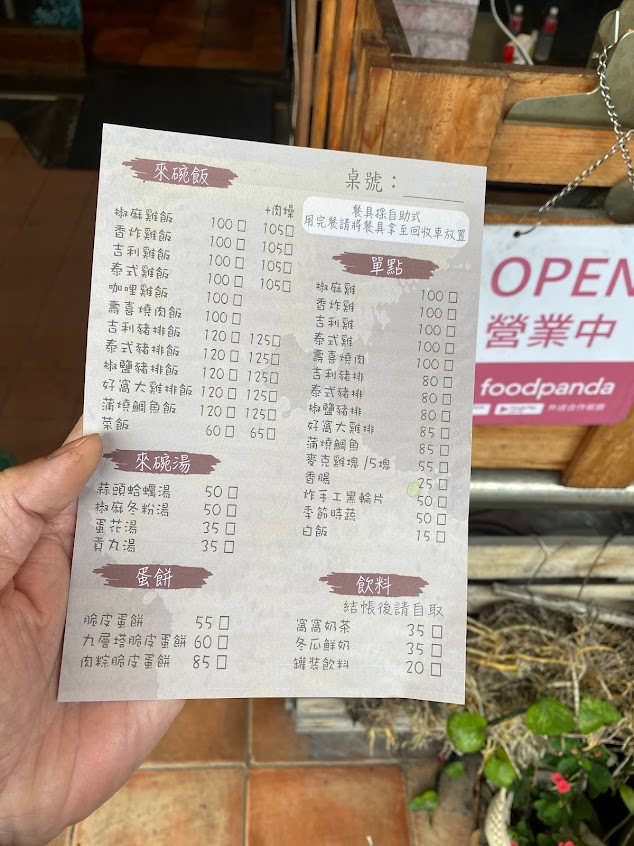 來碗飯
+肉燥
椒麻雞飯 100□ 105□
香炸雞飯 100□ 105□
吉利雞飯 100□ 105□
泰式雞飯 100□ 105□
咖哩雞飯 100□
壽喜燒肉飯 100□
吉利豬排飯 120□ 125□
泰式豬排飯 120□ 125□
椒鹽豬排飯 120□ 125□
好窩大雞排飯 120□ 125□
蒲燒鯛魚飯 120□ 125□
菜飯 60□ 65□
來碗湯
蒜頭蛤蠣湯 50□
椒麻冬粉湯 50□
蛋花湯 35□
貢丸湯 35□
蛋餅
脆皮蛋餅 55□
九層塔脆皮蛋餅 60□
肉粽脆皮蛋餅 85□
桌號：______
餐具採自助式
用完餐請將餐具拿至回收車放置
單點
椒麻雞 100□
香炸雞 100□
吉利雞 100□
泰式雞 100□
壽喜燒肉 100□
吉利豬排 80□
泰式豬排 80□
椒鹽豬排 80□
好窩大雞排 85□
蒲燒鯛魚 85□
麥克雞塊 /5塊 55□
香腸 25□
炸手工黑輪片 50□
季節時蔬 50□
白飯 15□
飲料
結帳後請自取
窩窩奶茶 35□
冬瓜鮮奶 35□
罐裝飲料 20□
OPEN
營業中
foodpanda
外送合作餐廳